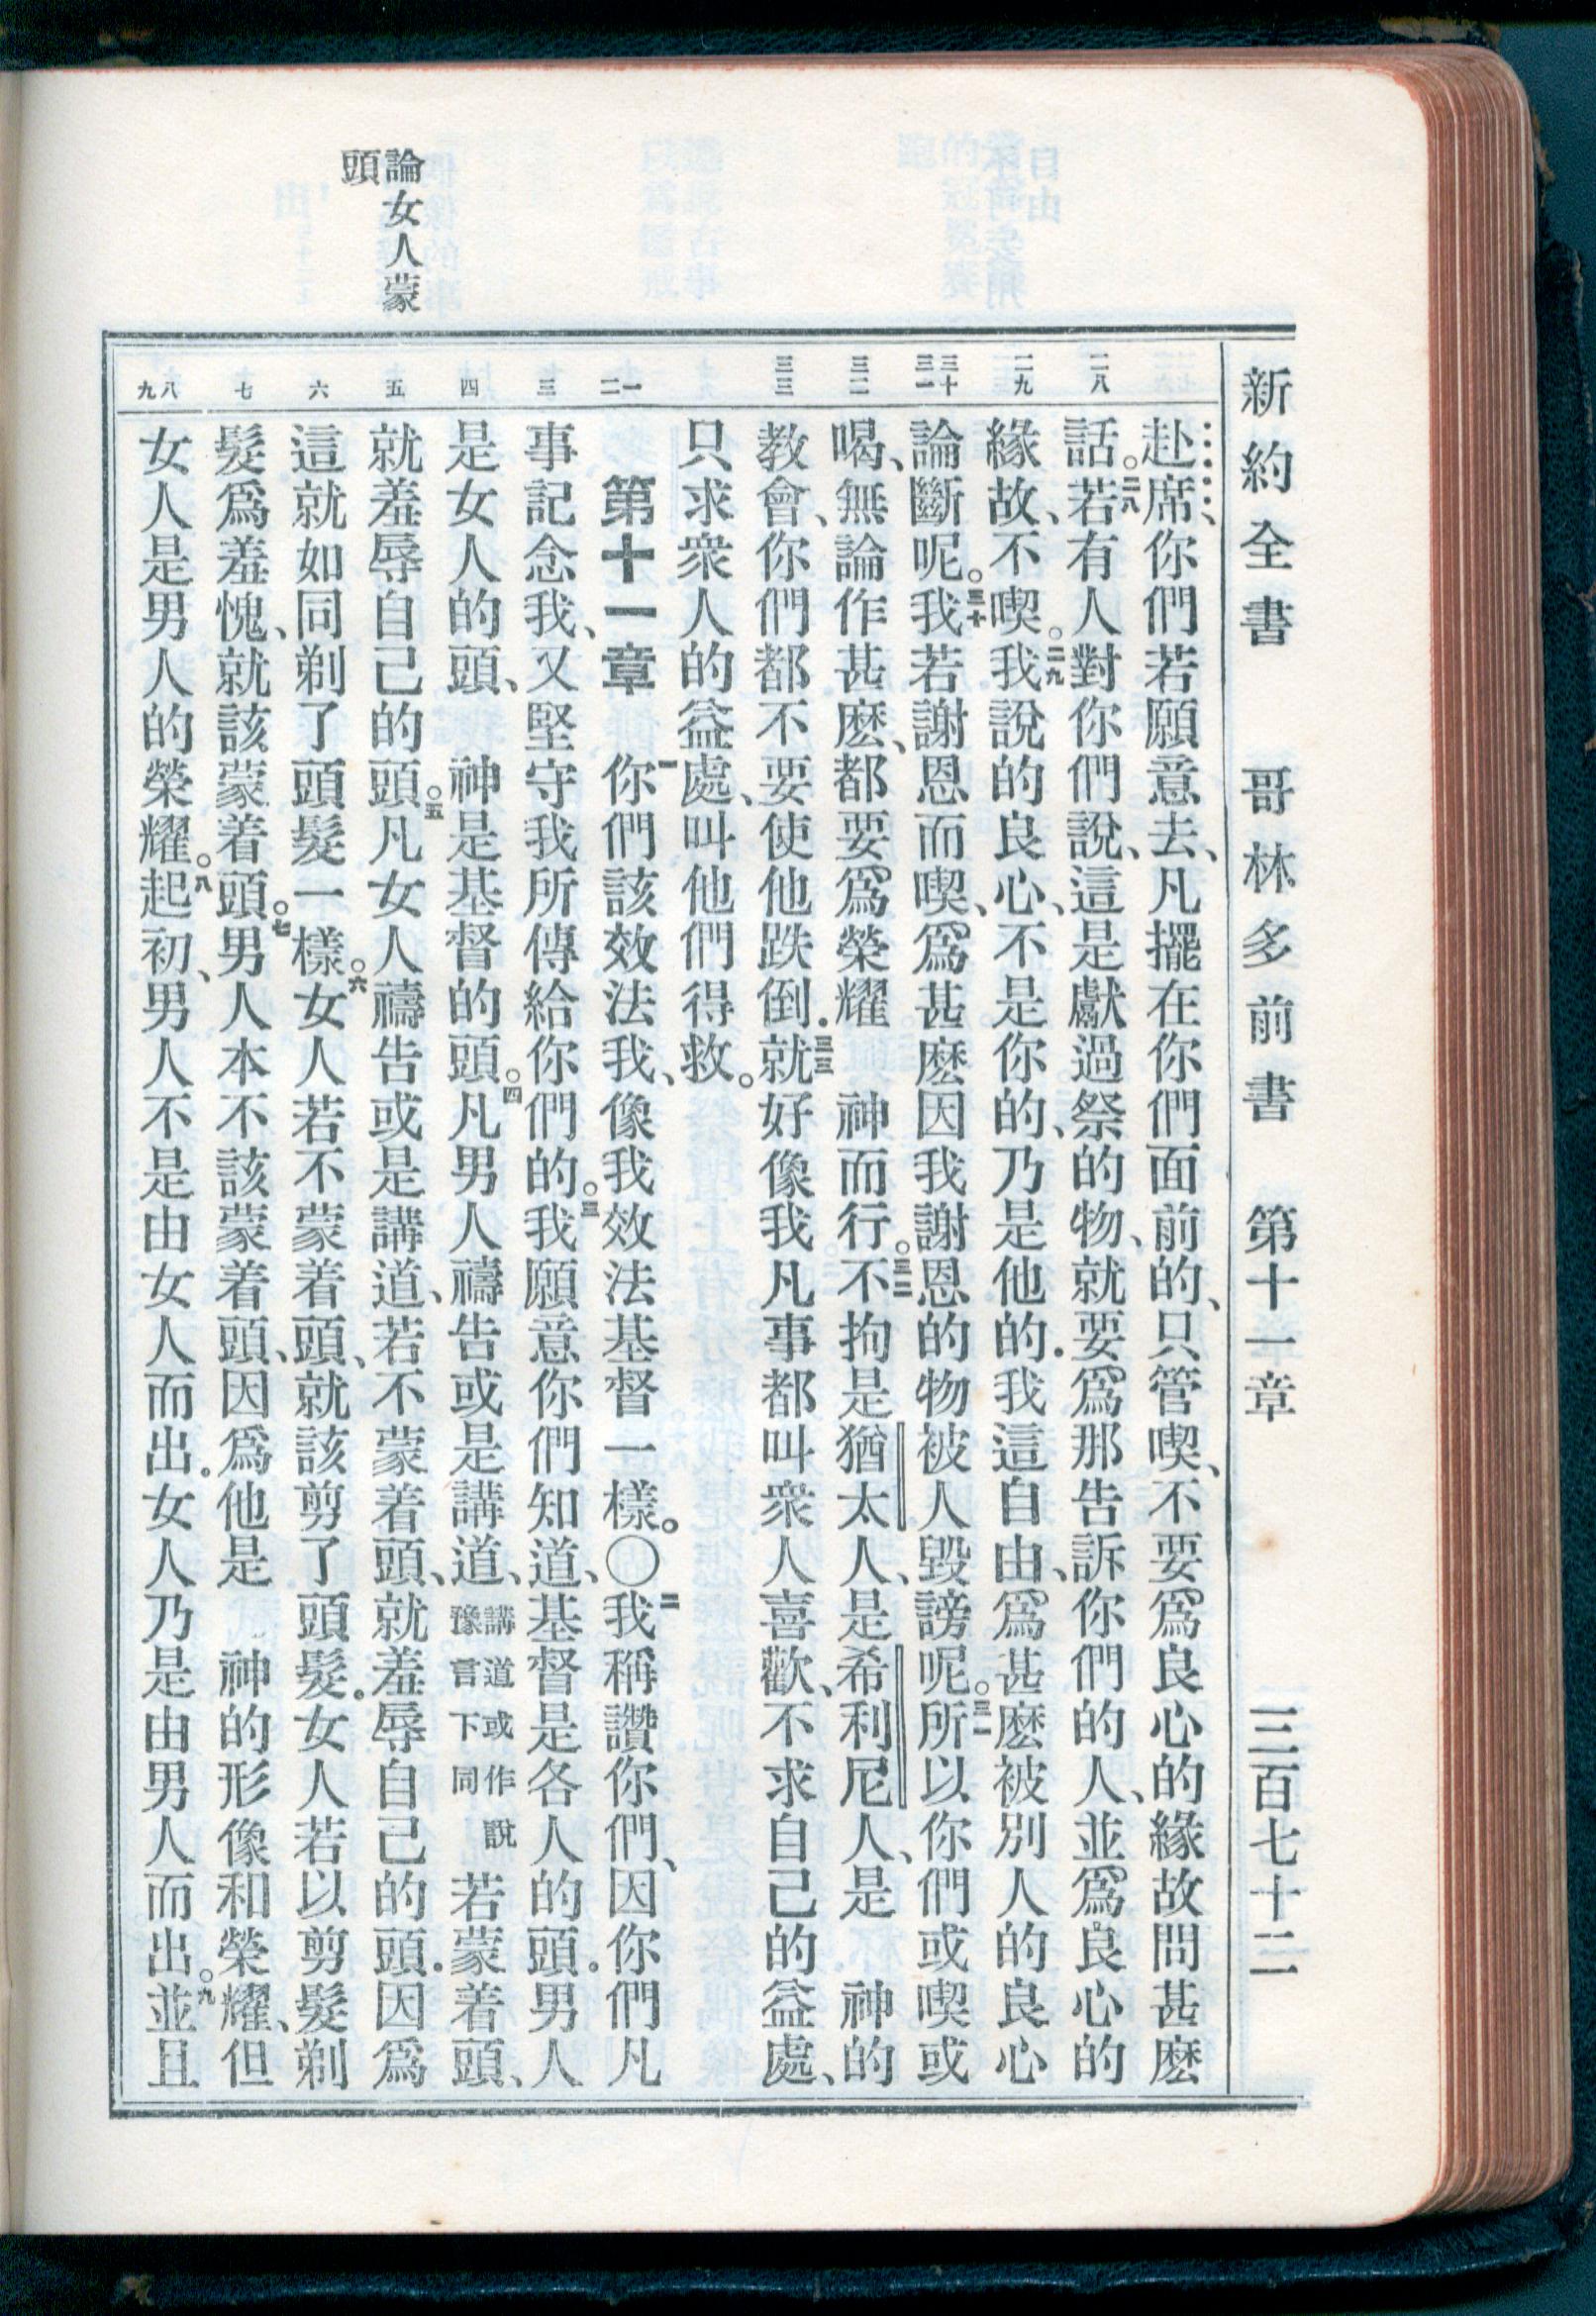 新約全書　哥林多前書　第十一章　三百七十二
論女人蒙
頭
二八
二九
三十
三一
三二
三三
一
二
三
四
五
六
七
八
九
赴席、你們若願意去、凡擺在你們面前的、只管喫、不要爲良心的緣故問甚麽
話。二八若有人對你們說、這是獻過祭的物、就要爲那告訴你們的人、並爲良心的
緣故、不喫。二九我說的良心、不是你的、乃是他的．我這自由、爲甚麽被別人的良心
論斷呢。三十我若謝恩而喫、爲甚麽因我謝恩的物被人毀謗呢。三一所以你們或喫或
喝、無論作甚麽、都要爲榮耀　神而行。三二不拘是猶太人、是希利尼人、是　神的
教會、你們都不要使他跌倒．三三就好像我凡事都叫衆人喜歡、不求自己的益處、
只求衆人的益處、叫他們得救。
第十一章　一你們該效法我、像我效法基督一樣。〇二我稱讚你們、因你們凡
事記念我、又堅守我所傳給你們的。三我願意你們知道、基督是各人的頭．男人
是女人的頭、　神是基督的頭。四凡男人禱告或是講道、講道或作說豫言下同若蒙着頭、
就羞辱自己的頭。五凡女人禱告或是講道、若不蒙着頭、就羞辱自己的頭．因爲
這就如同剃了頭髮一樣。六女人若不蒙着頭、就該剪了頭髮．女人若以剪髮剃
髮爲羞愧、就該蒙着頭。七男人本不該蒙着頭、因爲他是　神的形像和榮耀、但
女人是男人的榮耀。八起初、男人不是由女人而出．女人乃是由男人而出。九並且